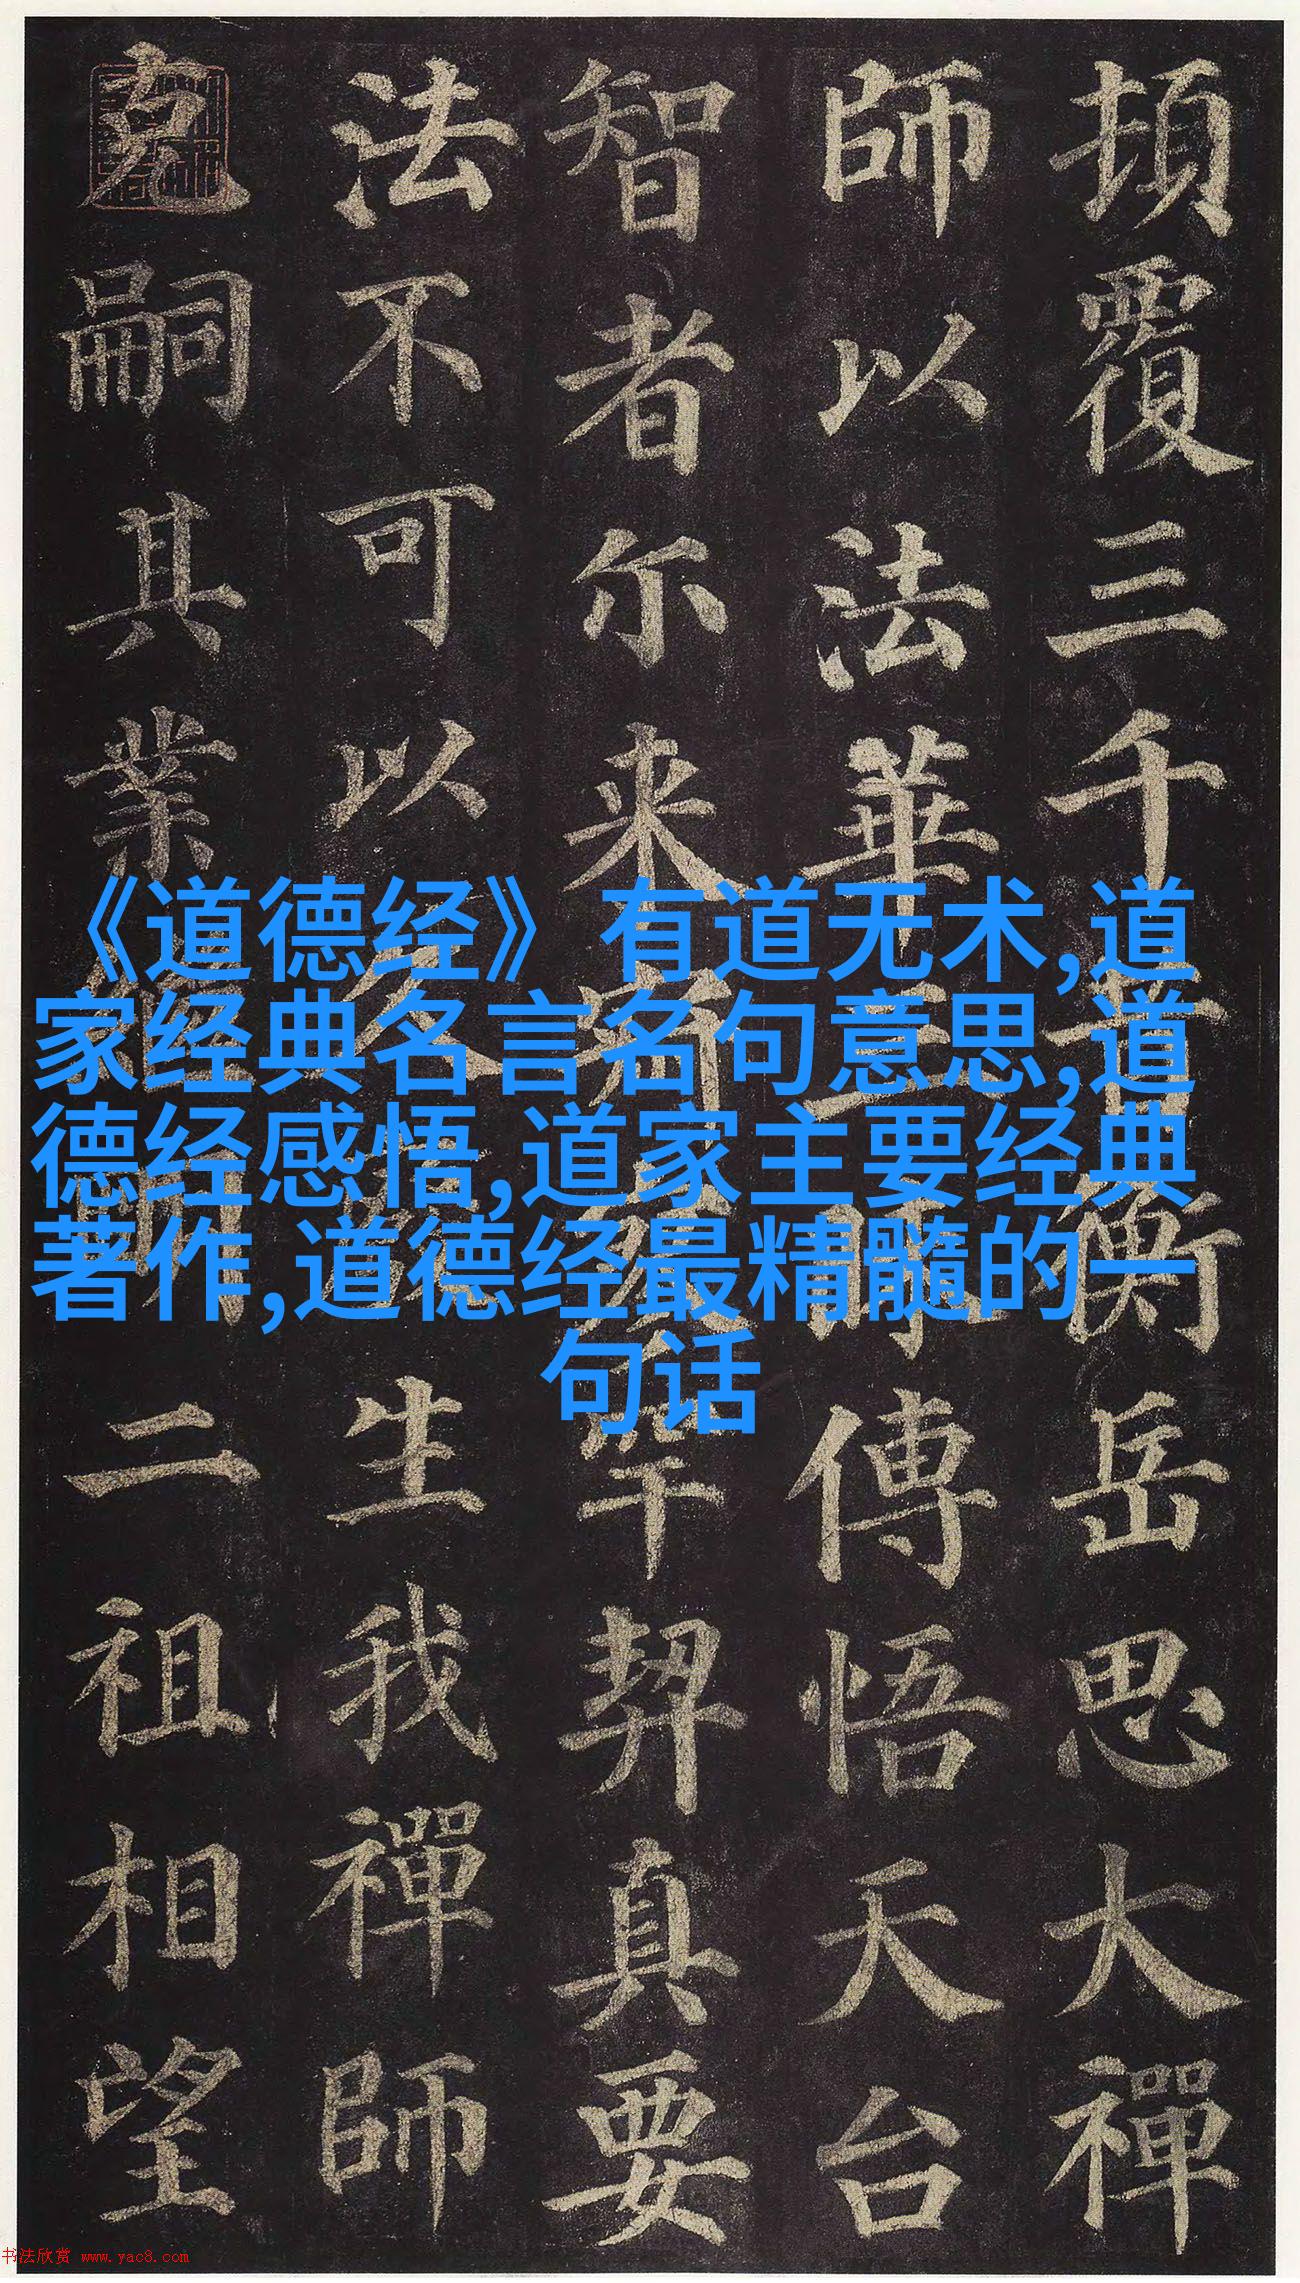 頓覆三千昔衡岳思大禪
師以法華三昧傳悟天台
智者尔来寂寥罕契真要
法不可以久廢生我禪師
克嗣其業繼明二祖相望
《道德经》有道无术,道
家经典名言名句意思,道
德经感悟,道家主要经典
著作,道德经最精髓的一
句话
书法欣赏 www.yac8.com